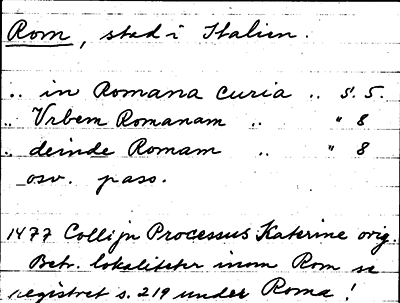 Rom, stad i Italien.
.. in Romana curia .. s. 5.
.. Vrbem Romanam .. " 8
.. deinde Romam .. " 8
osv. pass.
1477 Collijn Processus Katerine orig.
Betr. lokaliteter inom Rom se
registret s. 219 under Roma!